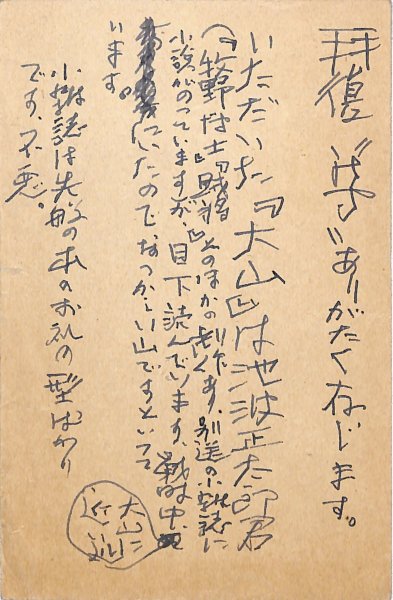 拝復 お葉書ありがたく存じます。
いただいた『大山』は池波正太郎君
(『牧野博士』『賊将』そのほかの劇作あり、別送の小雑誌に
小説がのっていますが、目下読んでいます、戦時中、
大山ニ
近江
にいたので、なつかしい山ですといって
います。
小雑誌は先般の本のお礼の型ばかり
です、不悪。